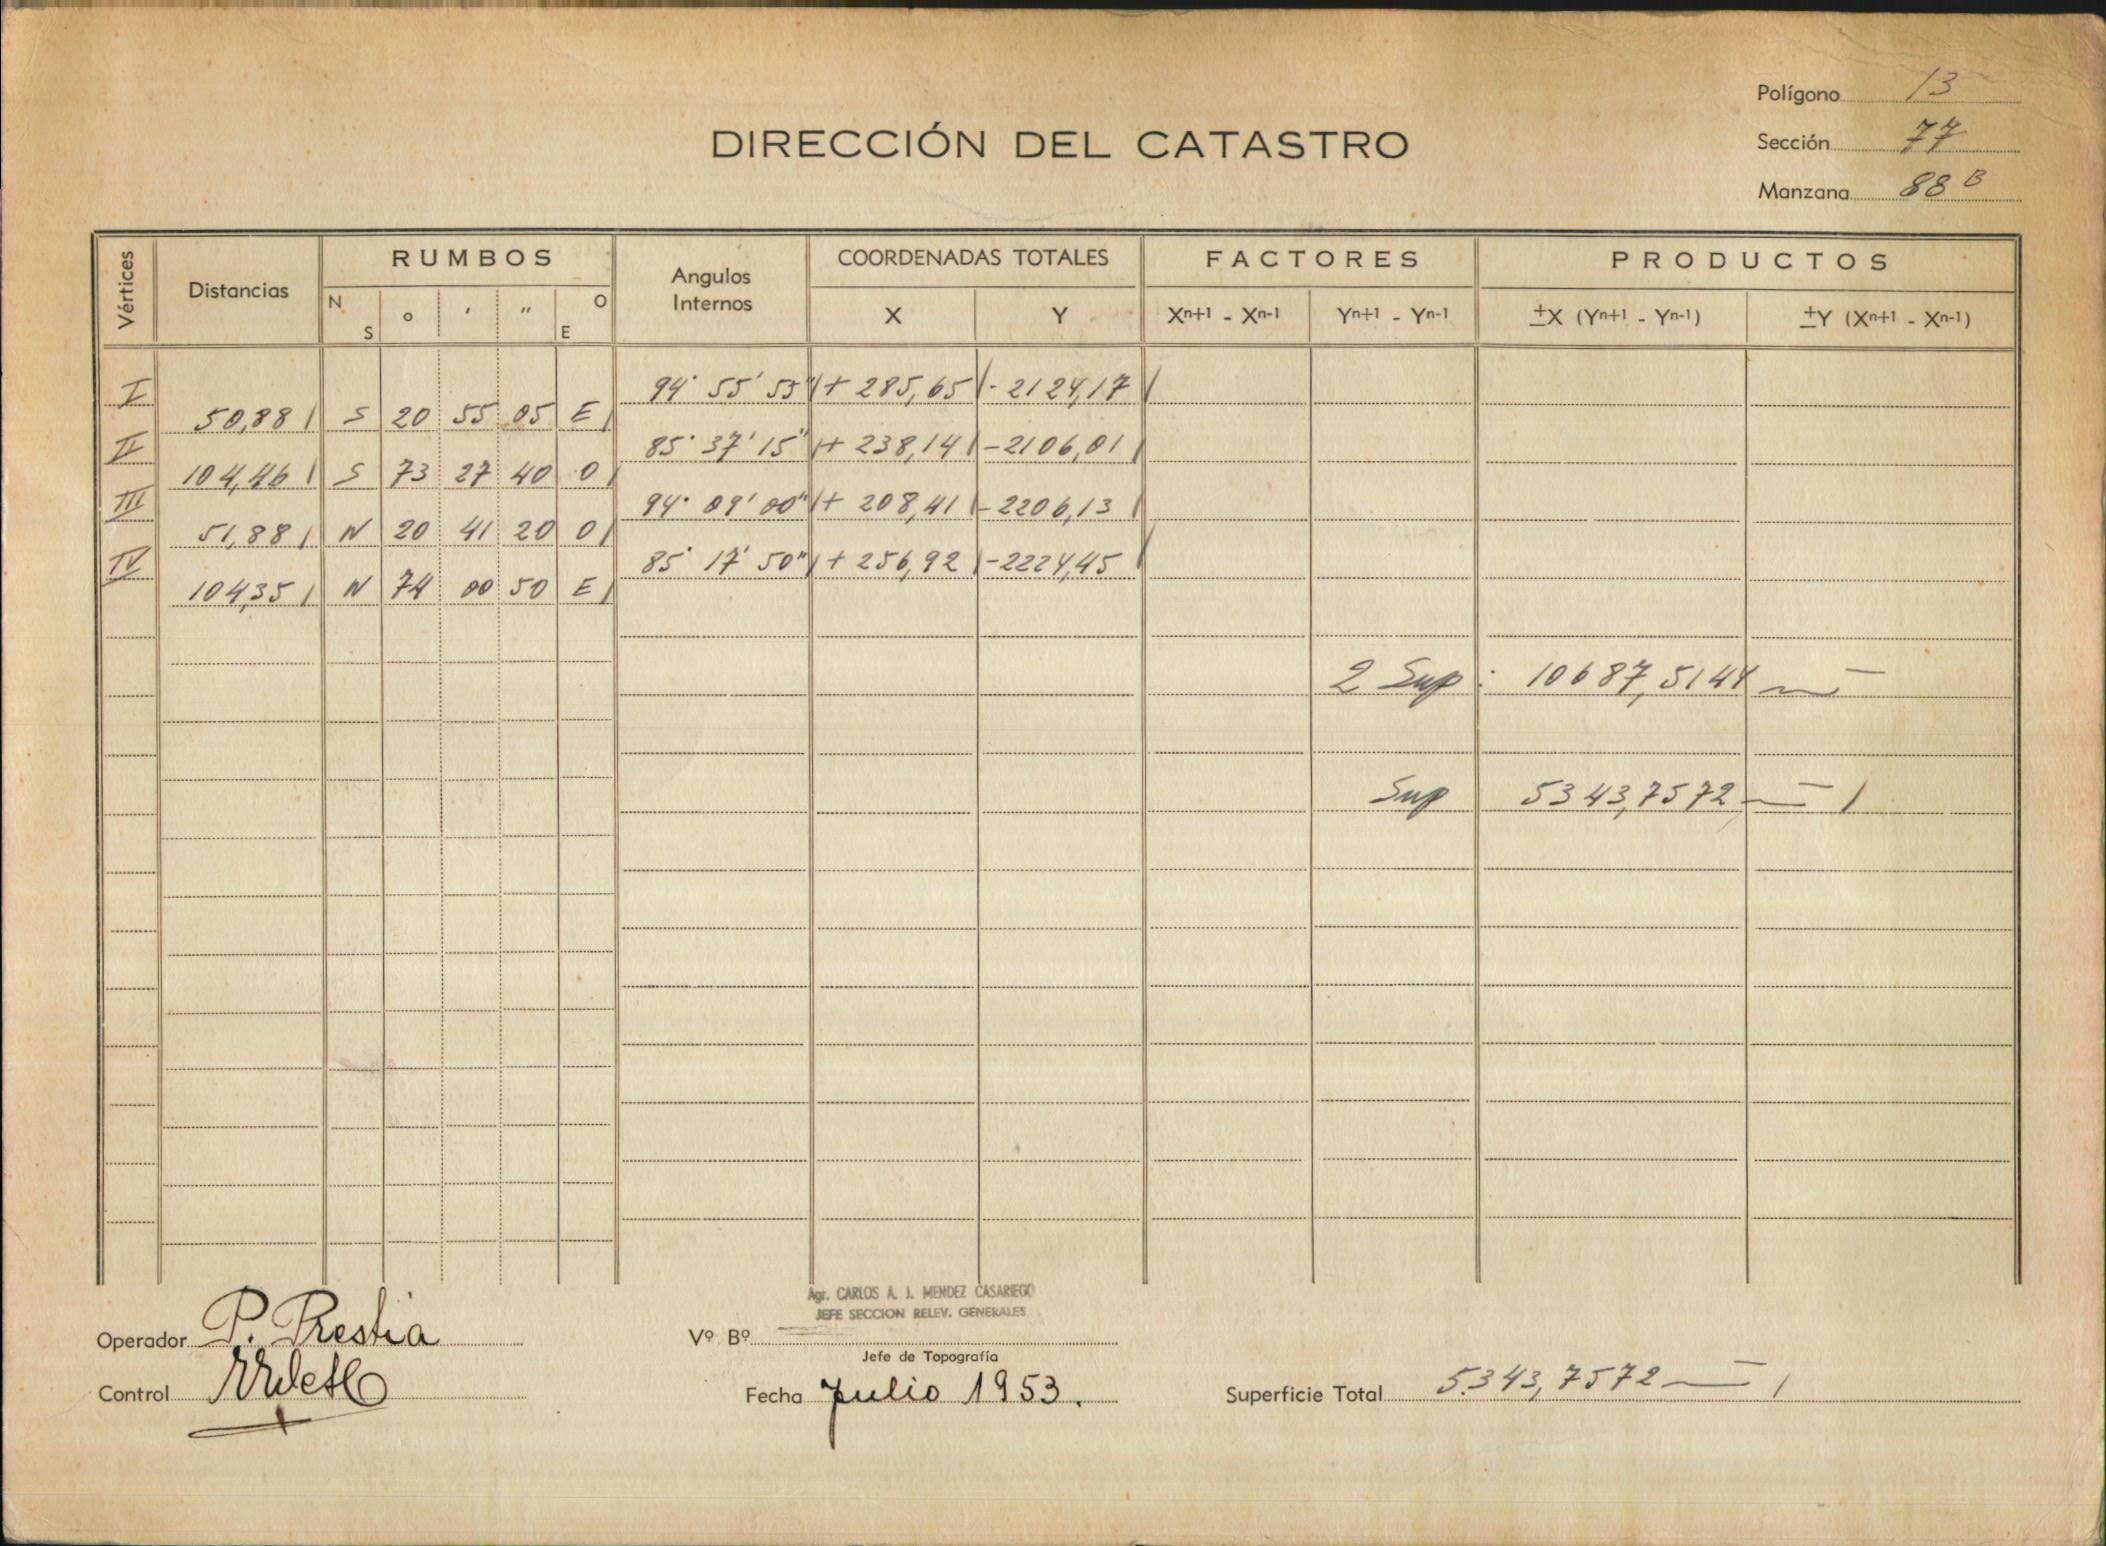 Polígono 13
DIRECCIÓN DEL CATASTRO
Sección 77
Manzana 88 B
Vértices Distancias RUMBOS Angulos Internos COORDENADAS TOTALES FACTORES PRODUCTOS
N S o ' " O E X Y Xn+1 - Xn-1 Yn+1 - Yn-1 ±X (Yn+1 - Yn-1) ±Y (Xn+1 - Xn-1)
I 94° 55' 55" + 285,65 - 2124,17
50,88 S 20 55 05 E
II 85° 37' 15" + 238,14 - 2106,01
104,46 S 73 27 40 O
III 94° 09' 00" + 208,41 - 2206,13
51,88 N 20 41 20 O
IV 85° 17' 50" + 256,92 - 2224,45
104,35 N 74 00 50 E
2 Sup : 10687,5144
Sup 5343,7572
Agr. CARLOS A. J. MENDEZ CASARIEGO
JEFE SECCION RELEV. GENERALES
Operador P. Prestia Vº Bº
Jefe de Topografía
Control
Fecha Julio 1953. Superficie Total 5.343,7572